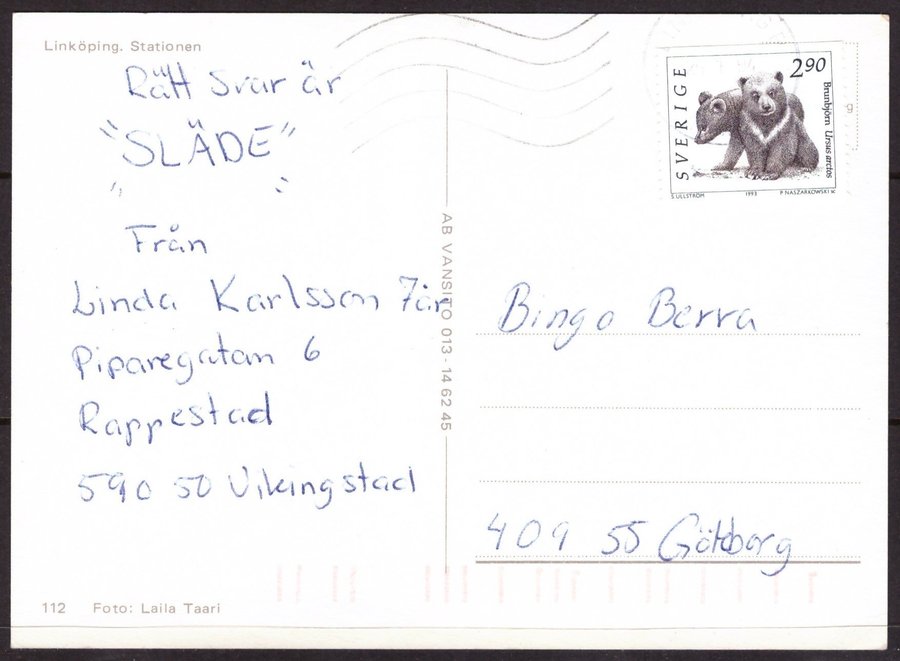 Linköping. Stationen
Rätt svar är
"SLÄDE"
Från
Linda Karlsson 7år
Piparegatan 6
Rappestad
590 50 Vikingstad
112 Foto: Laila Taari
AB VANSITO 013-14 62 45
SVERIGE
2 90
Brunbjörn Ursus arctos
S.ULLSTRÖM 1993 P.NASZARKOWSKI SC
g
Bingo Berra
409 55 Göteborg